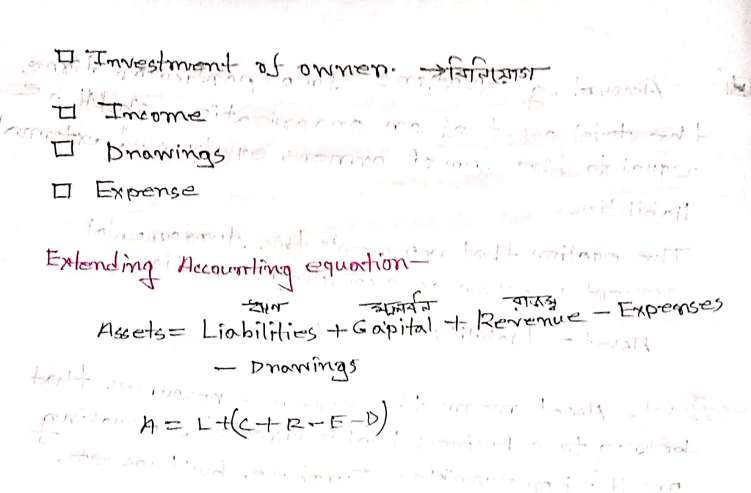 □ Investment of owner. → বিনিয়োগ
□ Income
□ Drawings
□ Expense
Extending Accounting equation—
ঋণ মূলধন রাজস্ব
Assets = Liabilities + Capital + Revenue – Expenses
– Drawings
A = L+(C+R-E-D)